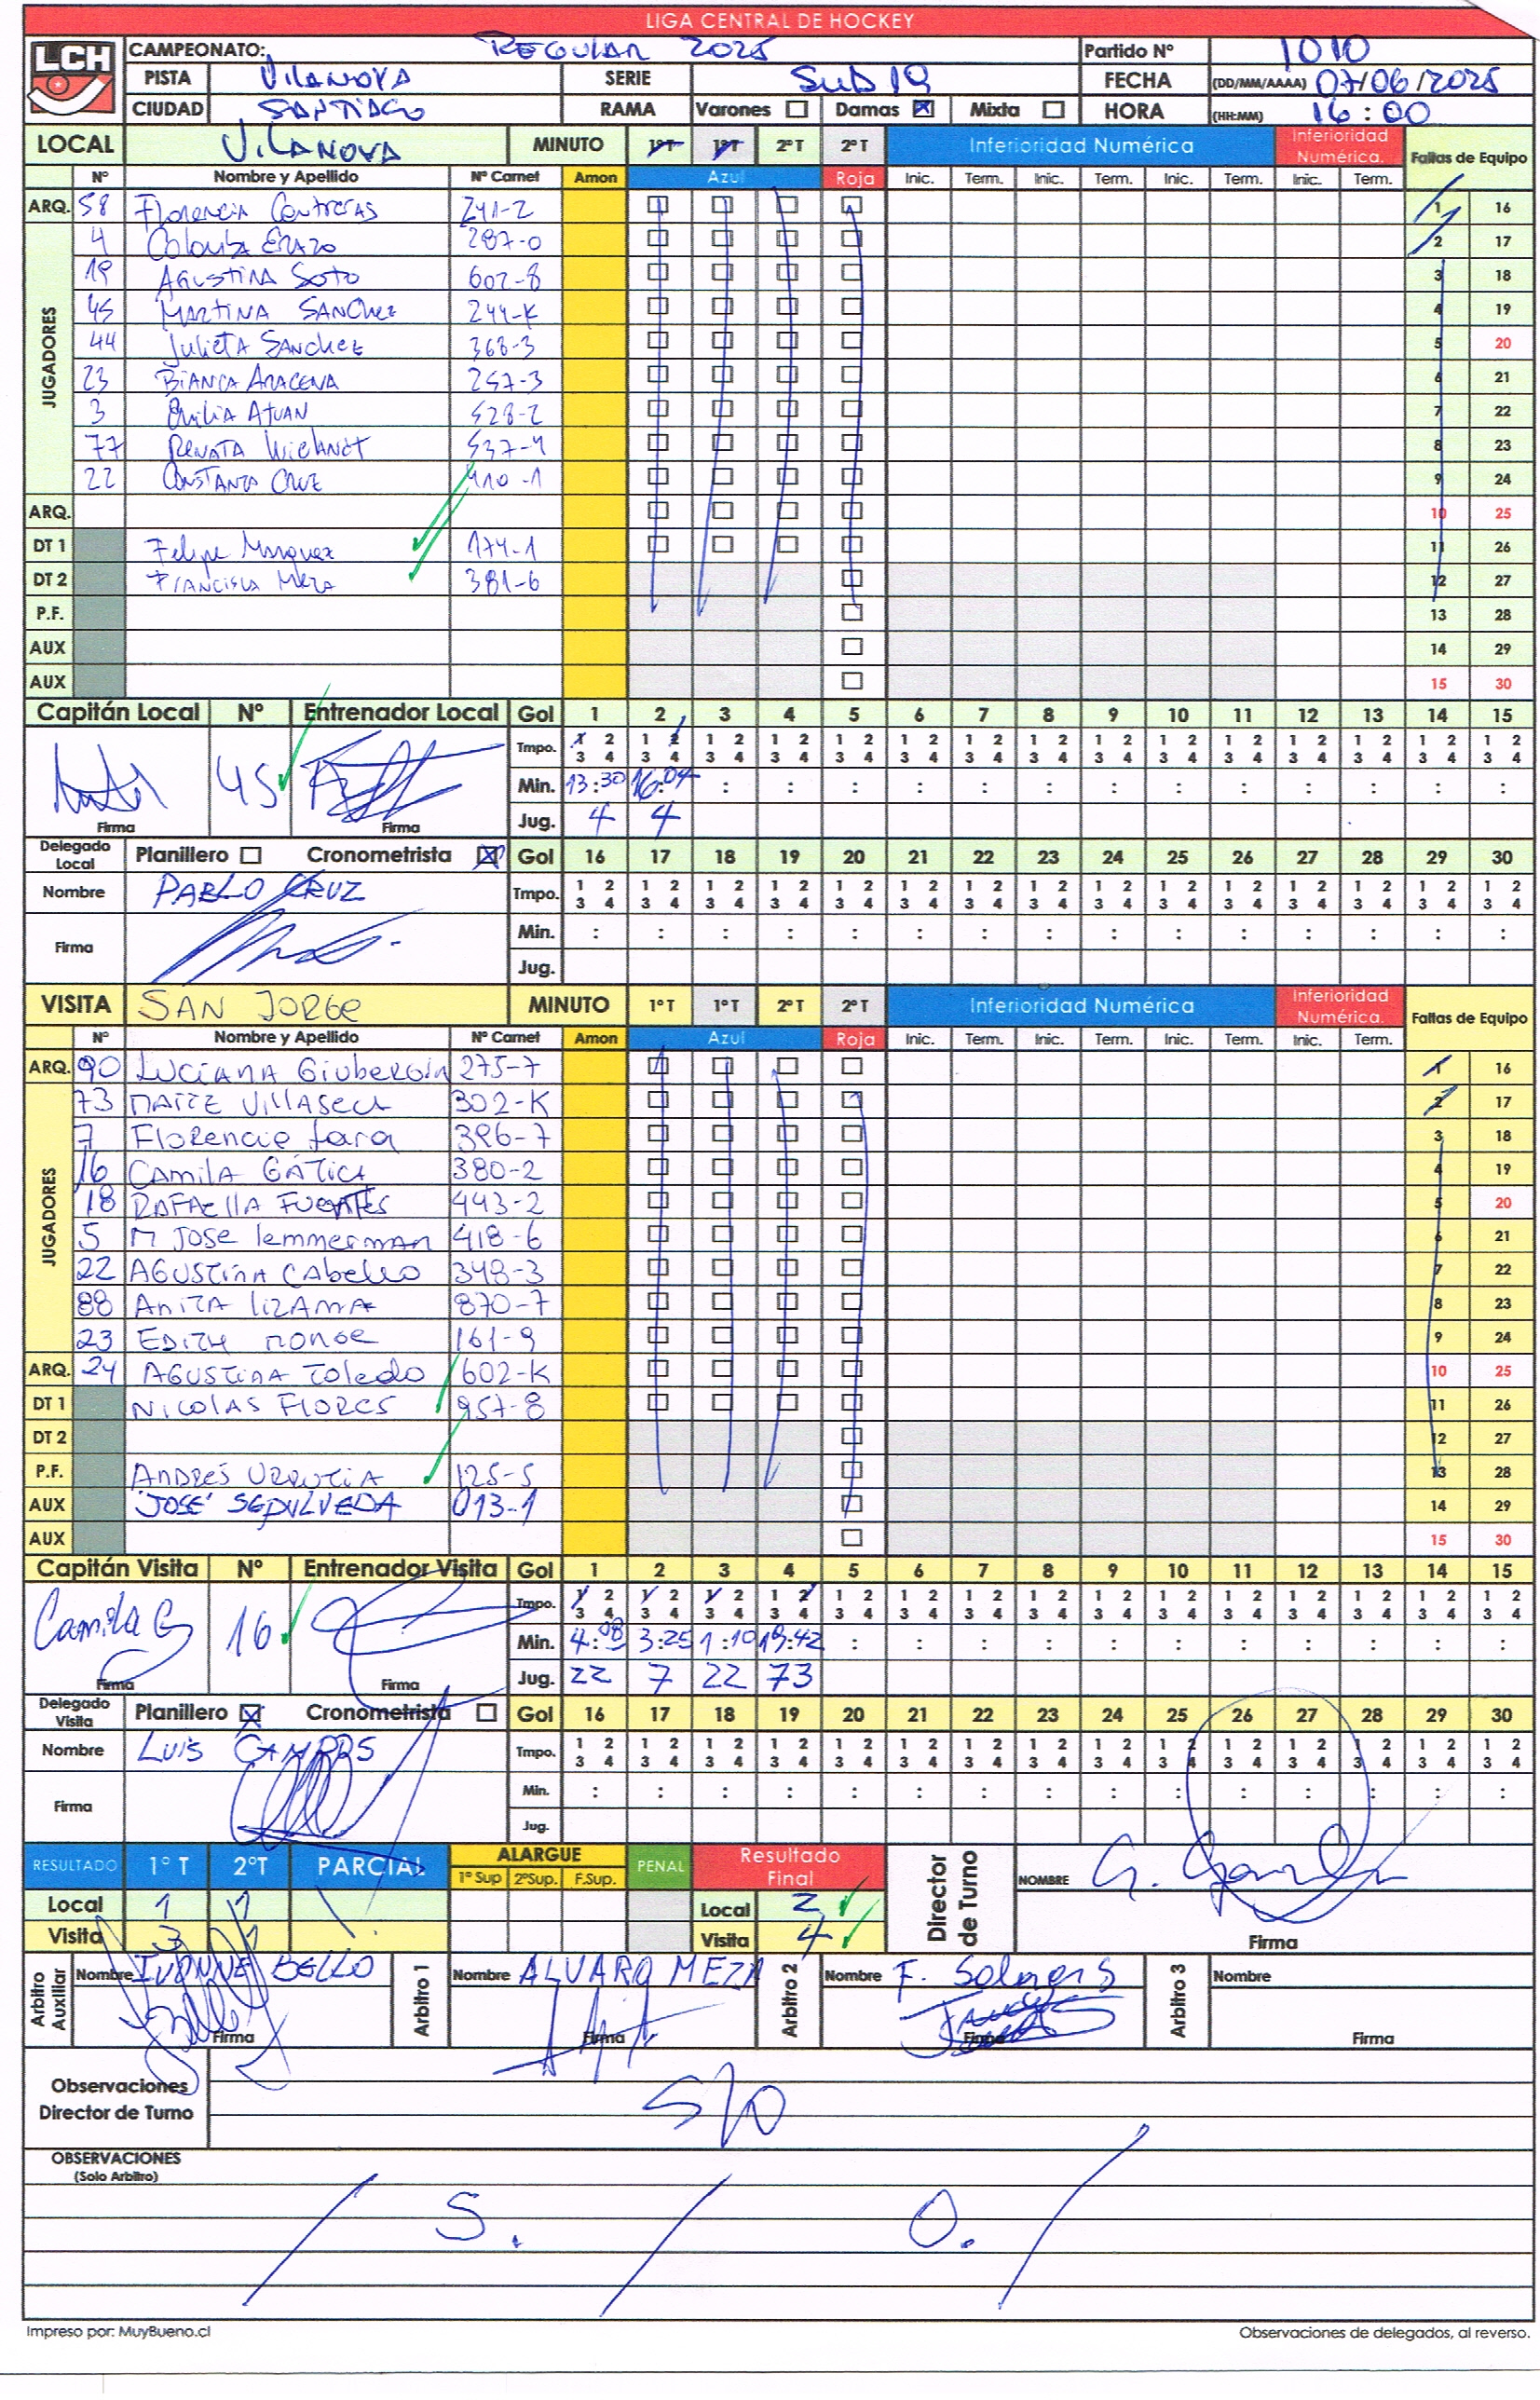 LIGA CENTRAL DE HOCKEY
LCH
CAMPEONATO: REGULAR 2025 Partido Nº 1010
PISTA VILANOVA SERIE SUB 19 FECHA (DD/MM/AAAA) 07/06/2025
CIUDAD SANTIAGO RAMA Varones Damas Mixta HORA (HH:MM) 16:00
LOCAL VILANOVA MINUTO 1ºT 1ºT 2ºT 2ºT Inferioridad Numérica Inferioridad Numérica. Faltas de Equipo
Nº Nombre y Apellido Nº Carnet Amon Azul Roja Inic. Term. Inic. Term. Inic. Term. Inic. Term.
ARQ. 58 Florencia Contreras 241-2 1 16
JUGADORES
4 Colomba Erazo 287-0 2 17
19 Agustina Soto 602-8 3 18
45 Martina Sanchez 244-K 4 19
44 Julieta Sanchez 368-3 5 20
23 Bianca Aracena 257-3 6 21
3 Emilia Atuan 528-2 7 22
77 Renata 537-4 8 23
22 Constanza Cruz 410-1 9 24
ARQ. 10 25
DT 1 Felipe Marquez 174-1 11 26
DT 2 Francisca Meza 381-6 12 27
P.F. 13 28
AUX 14 29
AUX 15 30
Capitán Local Nº Entrenador Local Gol 1 2 3 4 5 6 7 8 9 10 11 12 13 14 15
Tmpo. 1 2 3 4 1 2 3 4 1 2 3 4 1 2 3 4 1 2 3 4 1 2 3 4 1 2 3 4 1 2 3 4 1 2 3 4 1 2 3 4 1 2 3 4 1 2 3 4 1 2 3 4 1 2 3 4 1 2 3 4
45 Min. 13:30 16:04 : : : : : : : : : : : : :
Firma Firma Jug. 4 4
Delegado Local Planillero Cronometrista Gol 16 17 18 19 20 21 22 23 24 25 26 27 28 29 30
Nombre PABLO CRUZ Tmpo. 1 2 3 4 1 2 3 4 1 2 3 4 1 2 3 4 1 2 3 4 1 2 3 4 1 2 3 4 1 2 3 4 1 2 3 4 1 2 3 4 1 2 3 4 1 2 3 4 1 2 3 4 1 2 3 4 1 2 3 4
Firma Min. : : : : : : : : : : : : : : :
Jug.
VISITA SAN JORGE MINUTO 1ºT 1ºT 2ºT 2ºT Inferioridad Numérica Inferioridad Numérica. Faltas de Equipo
Nº Nombre y Apellido Nº Carnet Amon Azul Roja Inic. Term. Inic. Term. Inic. Term. Inic. Term.
ARQ. 90 Luciana Giubergia 275-7 1 16
JUGADORES
73 Maite Villaseca 302-K 2 17
7 Florencia Jara 396-7 3 18
16 Camila Gática 380-2 4 19
18 Rafaella Fuentes 443-2 5 20
5 M Jose Lemmerman 418-6 6 21
22 Agustina Cabello 348-3 7 22
88 Anita Lizama 870-7 8 23
23 Edith Monge 161-9 9 24
ARQ. 24 Agustina Toledo 602-K 10 25
DT 1 Nicolas Flores 957-8 11 26
DT 2 12 27
P.F. Andrés Urrutia 125-5 13 28
AUX José Sepulveda 013-1 14 29
AUX 15 30
Capitán Visita Nº Entrenador Visita Gol 1 2 3 4 5 6 7 8 9 10 11 12 13 14 15
Tmpo. 1 2 3 4 1 2 3 4 1 2 3 4 1 2 3 4 1 2 3 4 1 2 3 4 1 2 3 4 1 2 3 4 1 2 3 4 1 2 3 4 1 2 3 4 1 2 3 4 1 2 3 4 1 2 3 4 1 2 3 4
Camila G 16 Min. 4:08 3:25 1:10 19:42 : : : : : : : : : : :
Firma Firma Jug. 22 7 22 73
Delegado Visita Planillero Cronometrista Gol 16 17 18 19 20 21 22 23 24 25 26 27 28 29 30
Nombre LUIS CAMPOS Tmpo. 1 2 3 4 1 2 3 4 1 2 3 4 1 2 3 4 1 2 3 4 1 2 3 4 1 2 3 4 1 2 3 4 1 2 3 4 1 2 3 4 1 2 3 4 1 2 3 4 1 2 3 4 1 2 3 4 1 2 3 4
Firma Min. : : : : : : : : : : : : : : :
Jug.
RESULTADO 1º T 2ºT PARCIAL ALARGUE 1º Sup 2ºSup. F.Sup. PENAL Resultado Final Director de Turno NOMBRE
Local 1 1 Local 2
Visita 3 1 Visita 4 Firma
Arbitro Auxiliar Nombre IVONNE BELLO Firma Arbitro 1 Nombre ALVARO MEZA Firma Arbitro 2 Nombre F. Solares Firma Arbitro 3 Nombre Firma
Observaciones Director de Turno S/O
OBSERVACIONES (Solo Arbitro)
/ S. / O. /
Impreso por: MuyBueno.cl Observaciones de delegados, al reverso.